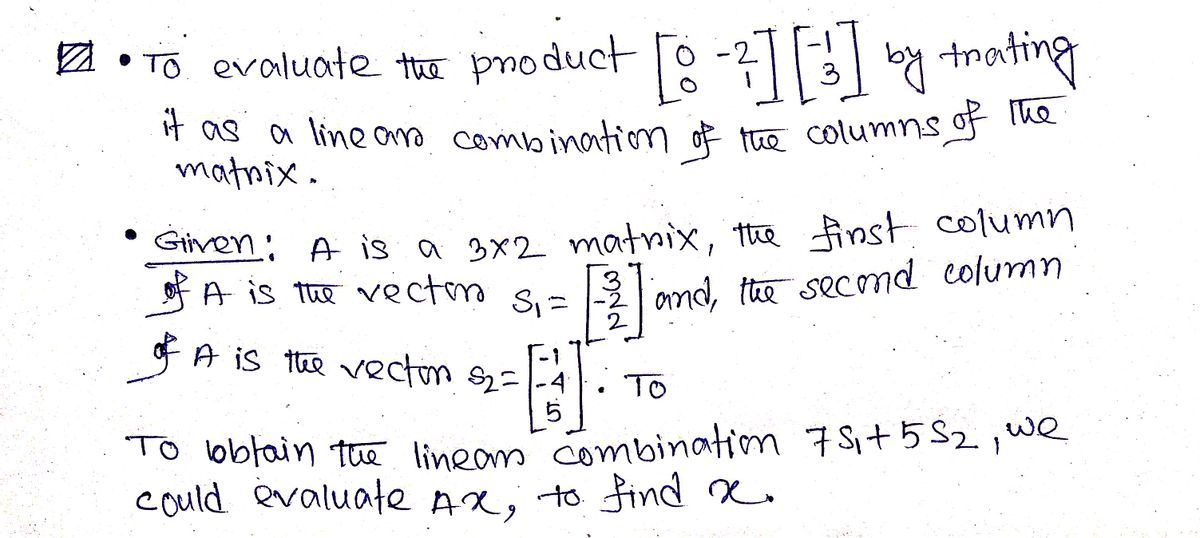 • To evaluate the product [0 -2; 0 1] [-1; 3] by trating
it as a linear combination of the columns of The
matrix.
• Given: A is a 3x2 matrix, the first column
of A is the vector S₁ = [3; -2; 2] and, the second column
of A is the vector S₂ = [-1; -4; 5]. TO
To obtain the linear combination 7S₁ + 5S₂, we
could evaluate Ax, to find x.